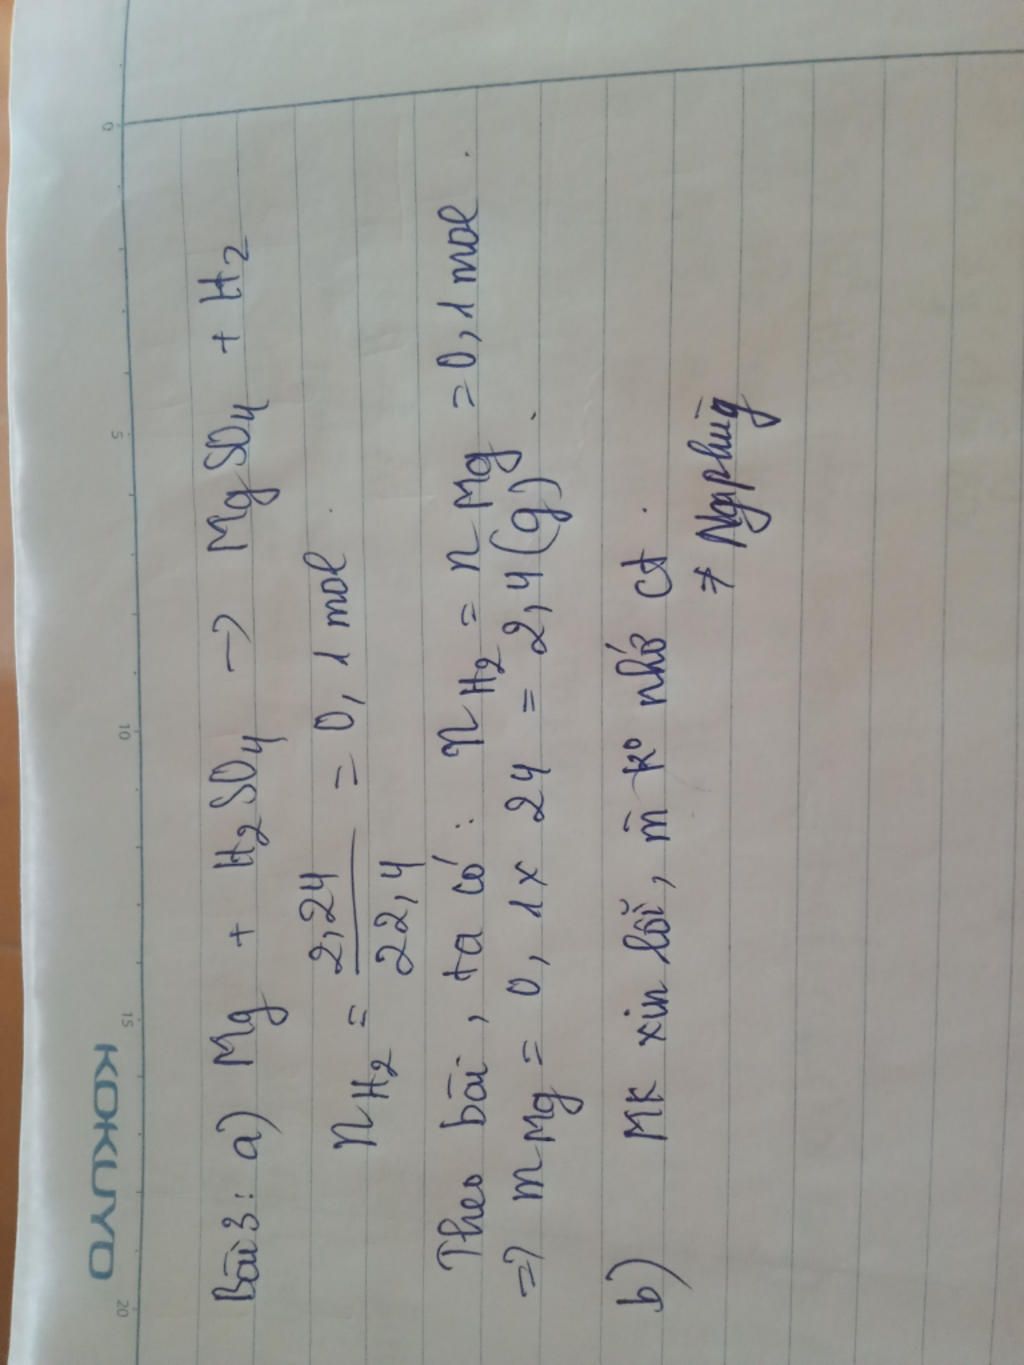 KOKUYO
20 15 10 5 0
Bài 3: a) Mg + H2SO4 → MgSO4 + H2
nH2 = 2,24 / 22,4 = 0,1 mol.
Theo bài, ta có: nH2 = nMg = 0,1 mol.
=> mMg = 0,1 x 24 = 2,4 (g).
b) MK xin lỗi, m̄ ko nhớ ct.
≠ Ngaphùg